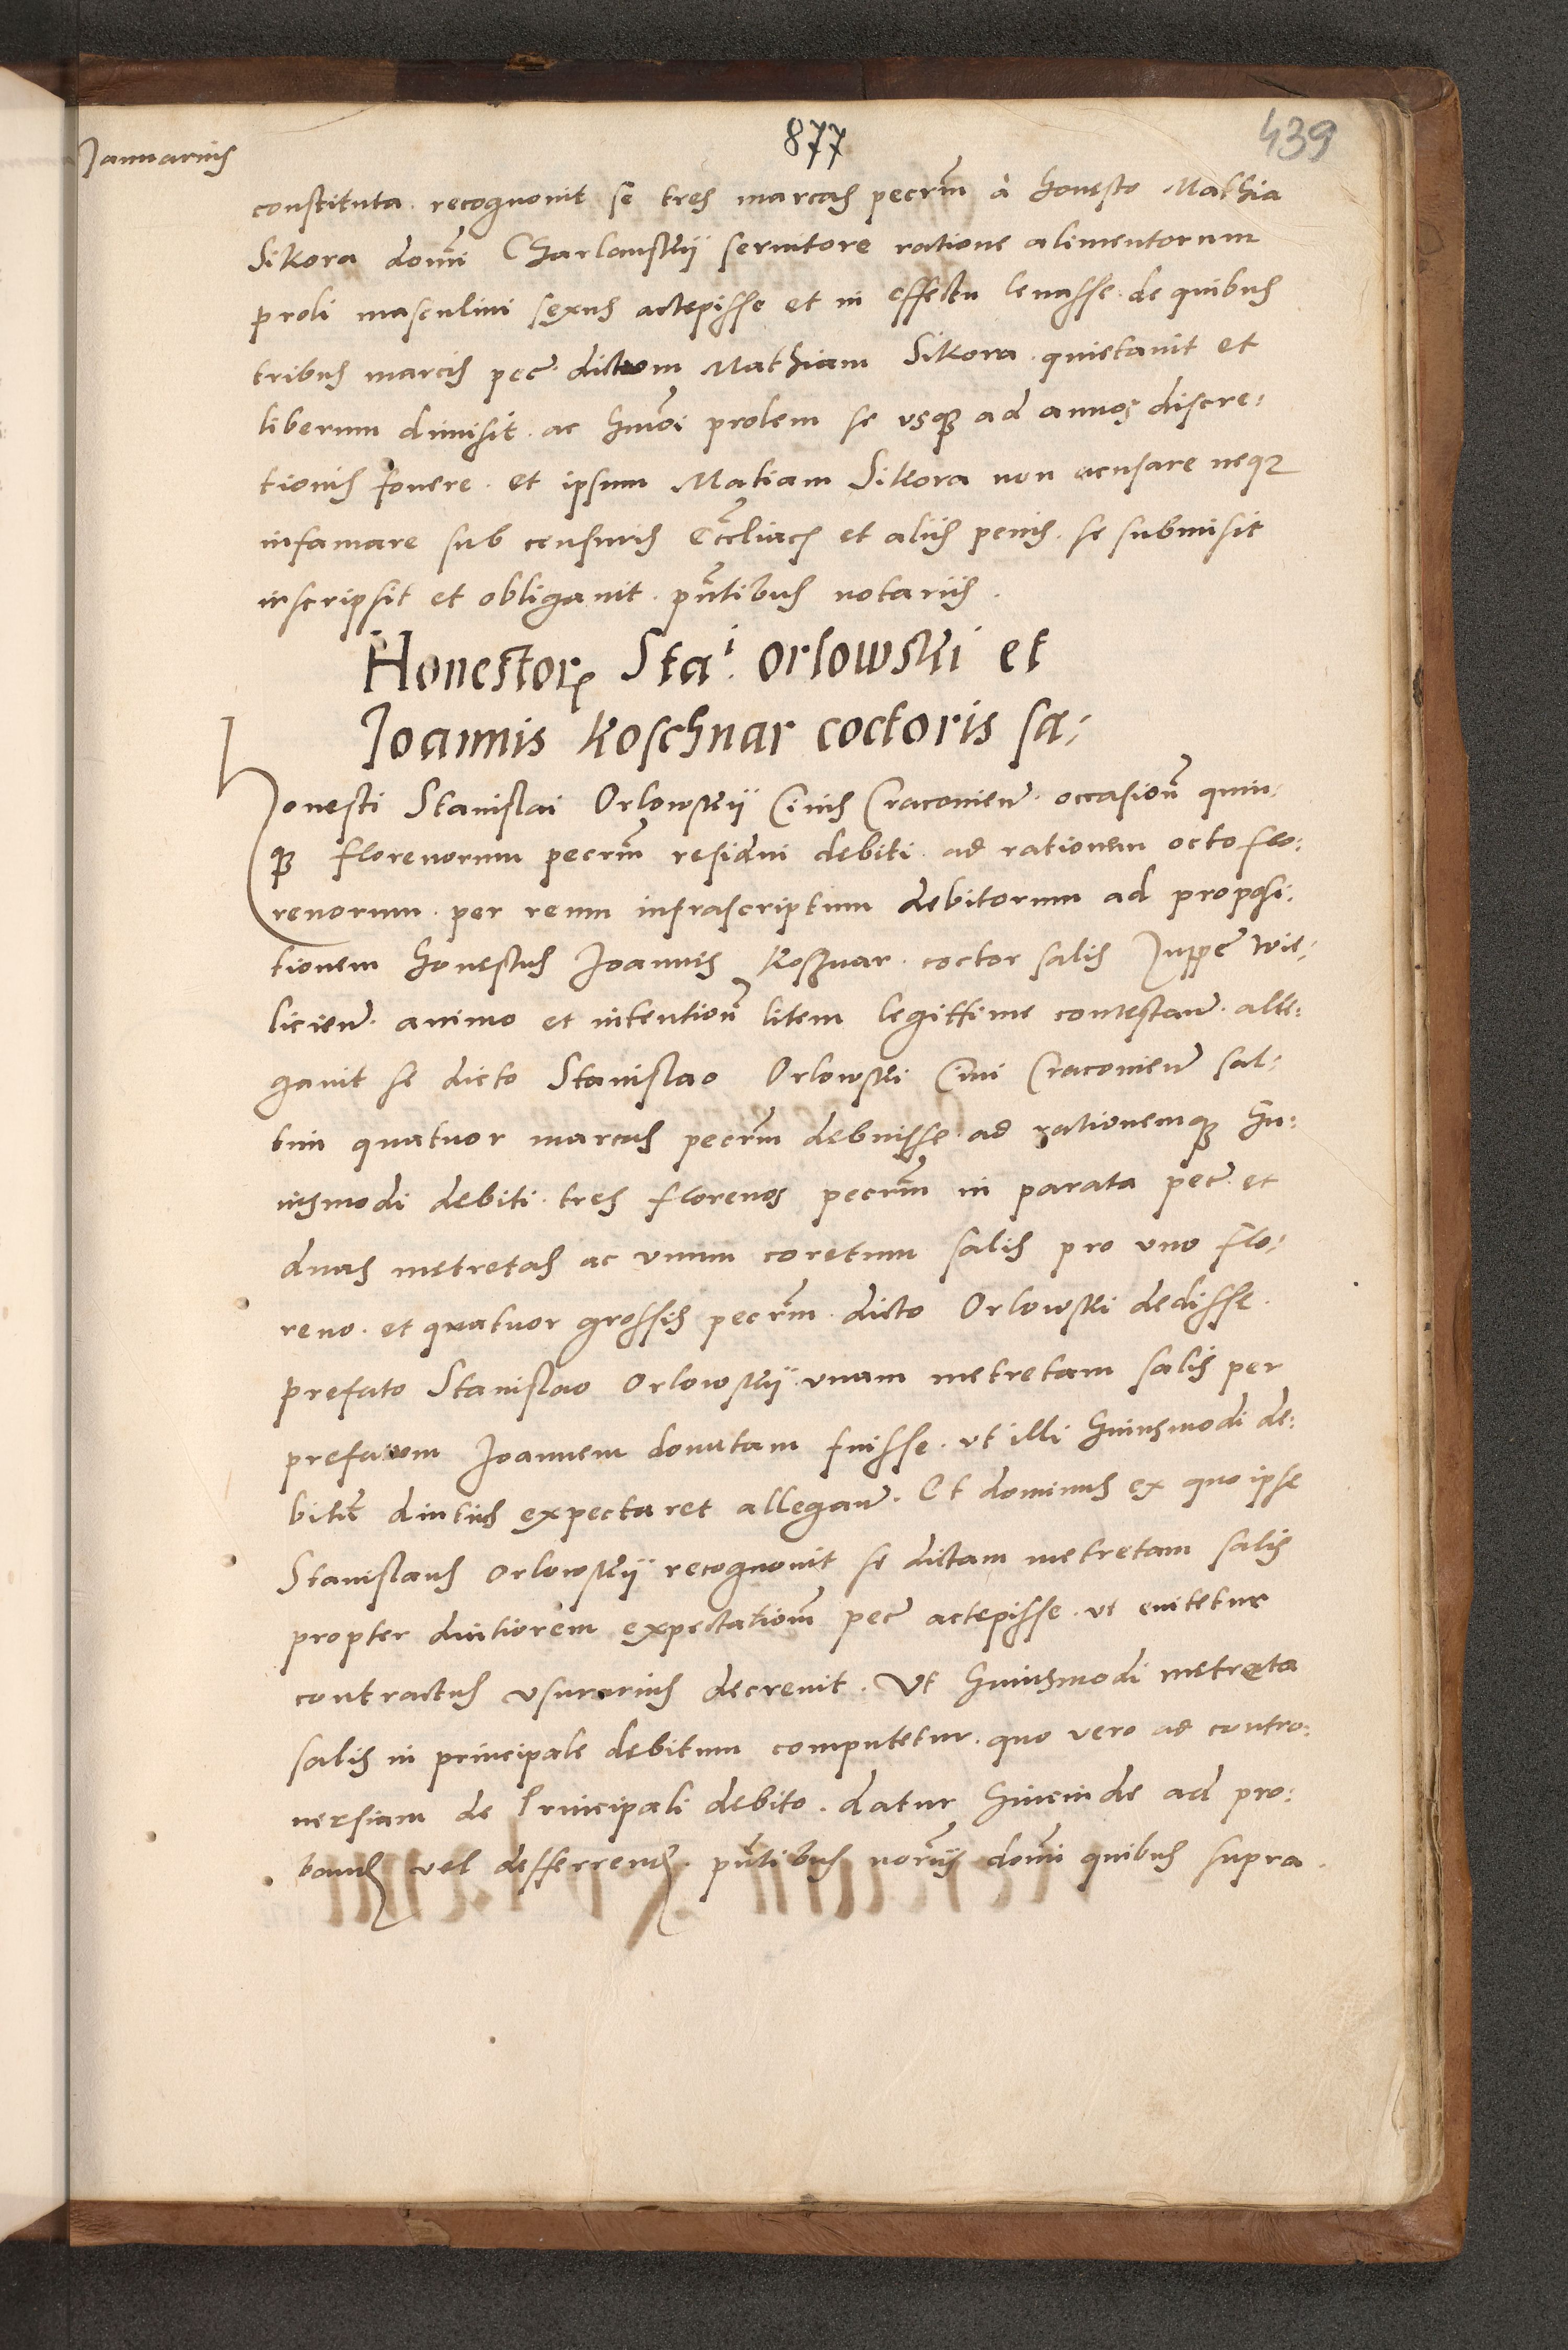 877
439
Januarius
constituta. recognovit se tres marcas pecrm̃ a honesto Mathia
Sikora domi̅ Charlanskii servitore ratione alimentorum
proli masculini sexus accepisse et in effectu levasse. de quibus
tribus marcis pec̃. dictum Mathiam Sikora. quietavit et
liberum dimisit. ac hmo̅i prolem se usq3 ad annos discre:
tionis fovere. et ipsum Matiam Sikora non accusare neq3
infamare sub censuris Eccl̅iacis et aliis penis. se submisit
inscripsit et obligavit. pn̅tibus notariis.
Honestor. Sta.i Orlowskii et
Joannis Koschnar coctoris sa:
Honesti Stanislai Orlowskii Civis Cracovien̅. occasion̅ quin:
q3 florenorum pecrm̃ residui debiti. ad rationem octo flo:
renorum. per reum infrascriptum debitorum ad proposi:
tionem honestus Joannes Koshnar. coctor salis Juppe̅ Wie:
licien̅. animo et intention̅ litem legittime contestan̅. alle:
gavit se dicto Stanislao Orlowski Civi Cracovien̅ sal:
tim quatuor marcas pecrm̃ debuisse. ad rationemq3 hu:
iusmodi debiti. tres florenos pecrm̃ in parata pec̃. et
duas metretas ac unum coretum salis pro uno flo:
reno. et quatuor grossis pecrm̃. dicto Orlowski dedisse.
prefato Stanislao Orlowskii. unam metretam salis per
prefatum Joannem donatam fuisse. ut illi huiusmodi de:
bitũ diutius expectaret allegan̅. Et dominus ex quo ipse
Stanislaus Orlowskii recognovit se dictam metretam salis
propter diutiorem expectatiom̅ pec̃ accepisse. ut evitetur
contractus usurarius decrevit. Ut huiusmodi metreta
salis in principale debitum computetur. quo vero ad contro:
versiam de Principali debito. datur hincinde ad pro:
band. vel defferrend. pn̅tibus nor̅iis domi̅ quibus supra.